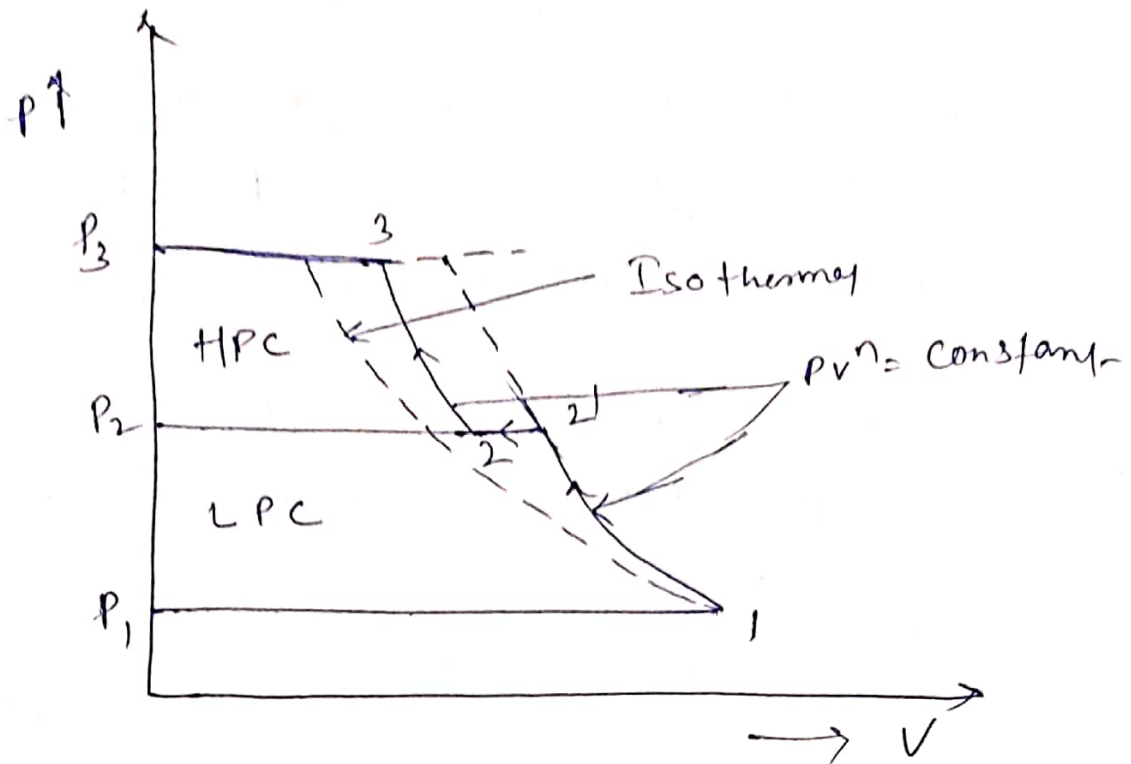 P↑
P3
3
Isothermal
HPC
PVⁿ = Constant
P2
2'
2
LPC
P1
1
V